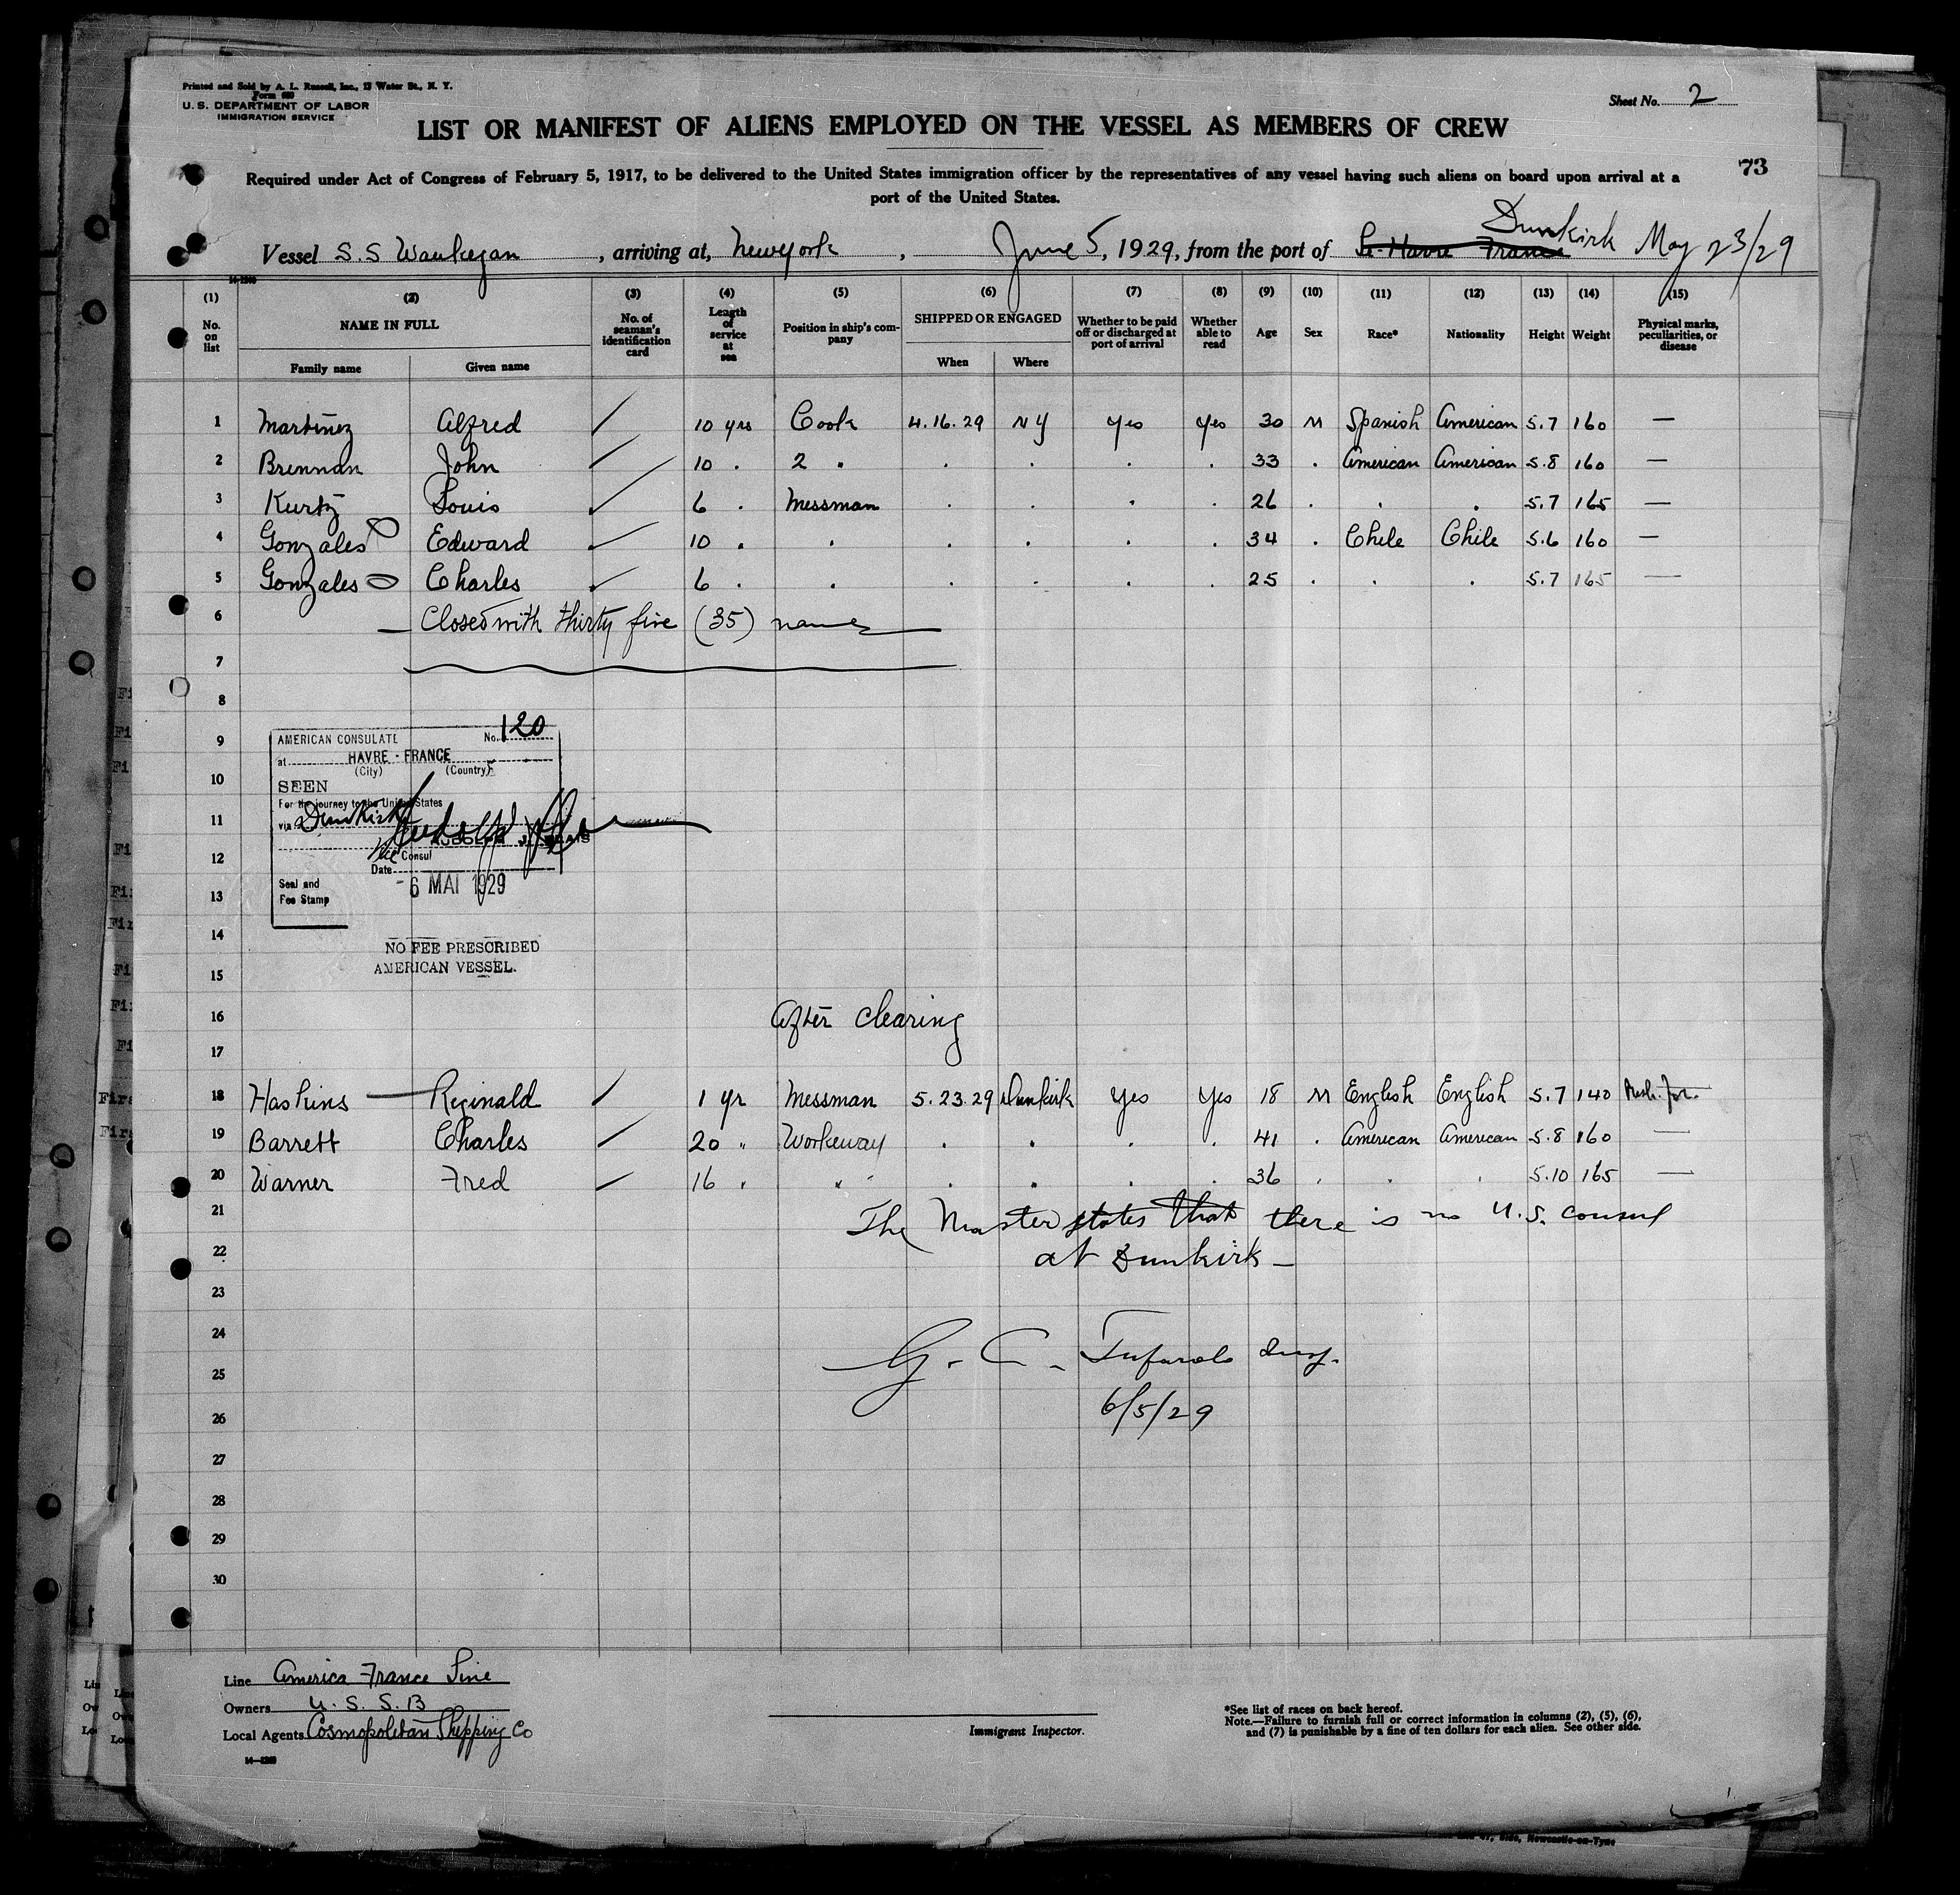 Printed and Sold by A. L. Russell, Inc., 13 Water St., N. Y.
Form 680
U. S. DEPARTMENT OF LABOR
IMMIGRATION SERVICE
Sheet No. 2
LIST OR MANIFEST OF ALIENS EMPLOYED ON THE VESSEL AS MEMBERS OF CREW
73
Required under Act of Congress of February 5, 1917, to be delivered to the United States immigration officer by the representatives of any vessel having such aliens on board upon arrival at a
port of the United States.
Dunkirk May 23/29
Vessel S.S Waukegan, arriving at, New York, June 5, 1929, from the port of Le Havre France
14-1240
(1) (2) (3) (4) (5) (6) (7) (8) (9) (10) (11) (12) (13) (14) (15)
No. on list NAME IN FULL No. of seaman's identification card Length of service at sea Position in ship's company SHIPPED OR ENGAGED Whether to be paid off or discharged at port of arrival Whether able to read Age Sex Race* Nationality Height Weight Physical marks, peculiarities, or disease
Family name Given name When Where
1 Martinez Alfred / 10 yrs Cook 4.16.29 NY Yes Yes 30 M Spanish American 5.7 160 —
2 Brennan John / 10 . 2 " . . . . 33 . American American 5.8 160 —
3 Kurtz Louis / 6 . Messman . . . . 26 . . . 5.7 165 —
4 Gonzales Edward / 10 . . . . . . 34 . Chile Chile 5.6 160 —
5 Gonzales Charles / 6 . . . . . . 25 . . . 5.7 165 —
6 — Closed with thirty five (35) names —
7
8
9
10
11
12
13
14
15
AMERICAN CONSULATE No. 120
at HAVRE - FRANCE
(City) (Country)
SEEN
For the journey to the United States
via Dunkirk
Vice Consul
Date
- 6 MAI 1929
Seal and
Fee Stamp
NO FEE PRESCRIBED
AMERICAN VESSEL.
16 After clearing
17
18 Haskins — Reginald / 1 yr Messman 5.23.29 Dunkirk Yes Yes 18 M English English 5.7 140
19 Barrett Charles / 20 " Workeway . . . . 41 . American American 5.8 160 —
20 Warner Fred / 16 " " " . . . . 36 . . . 5.10 165 —
21 The Master states that there is no U.S. consul
22 at Dunkirk —
23
24 G. C. Tufarolo Insp.
25
26 6/5/29
27
28
29
30
Line America France Line
Owners U. S. S. B
Local Agents Cosmopolitan Shipping Co
14-1240
Immigrant Inspector.
*See list of races on back hereof.
Note.—Failure to furnish full or correct information in columns (2), (5), (6),
and (7) is punishable by a fine of ten dollars for each alien. See other side.